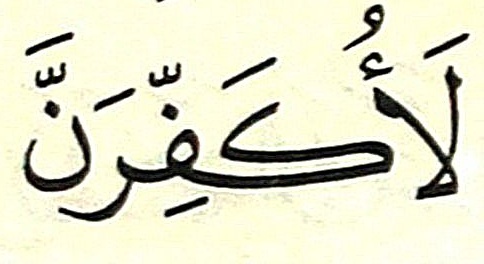 لَأُكَفِّرَنَّ